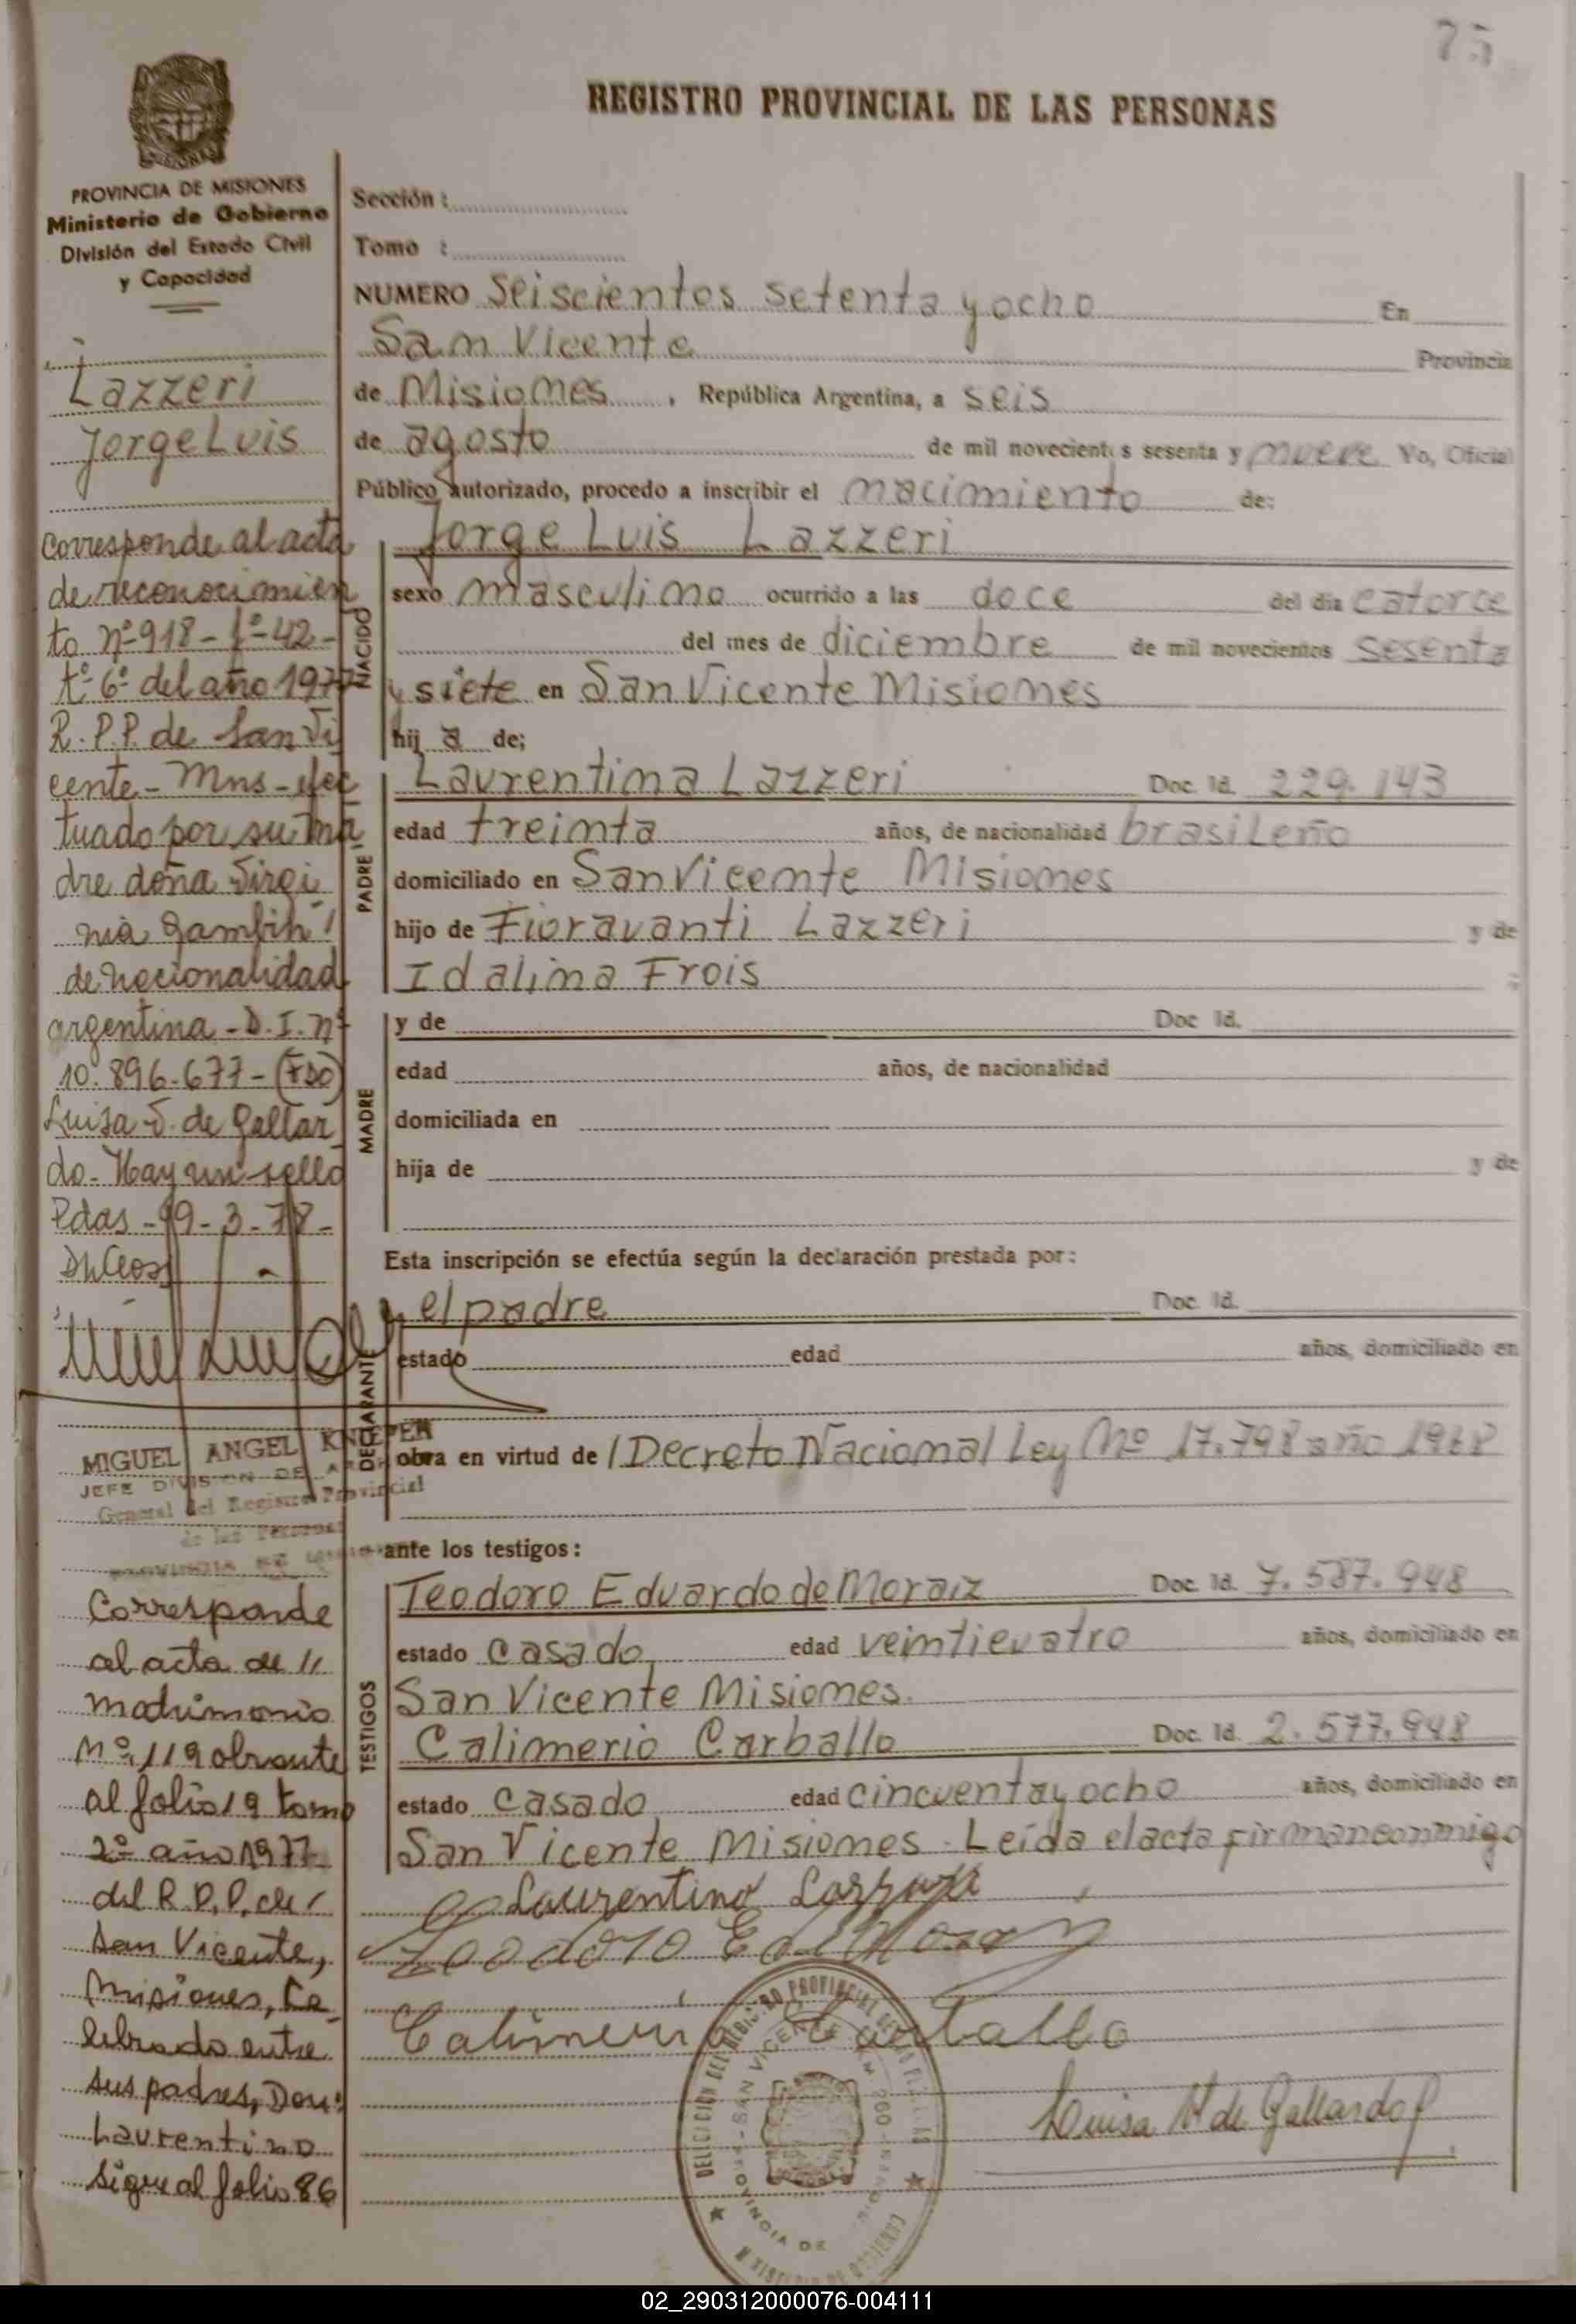 75
REGISTRO PROVINCIAL DE LAS PERSONAS
MISIONES
PROVINCIA DE MISIONES
Ministerio de Gobierno
División del Estado Civil
y Capacidad
Lazzeri
Jorge Luis
Corresponde al acta
de reconocimien
to nº 918 - fº - 42 -
tº 6º del año 1977
R. P. P. de San Vi
cente - Mns - efec
tuado por su ma
dre doña Virgi
nia Gambin
de nacionalidad
argentina - D. I. nº
10.896.677 - (FDO)
Luisa V. de Gallar
do - Hay un sello
Pdas - 19 - 3 - 78 -
MIGUEL ANGEL KNEPER
JEFE DIVISION DE
General del Registro Provincial
de las Personas
PROVINCIA DE
Corresponde
al acta de //
matrimonio
Nº 119 obrante
al folio 19 tomo
2º año 1977
del R. P. P. de /
San Vicente,
Misiones, Ce_
lebrado entre
sus padres, Don:
Laurentino
sigue al folio 86
Sección :
Tomo :
NUMERO Seiscientos setenta y ocho En
San Vicente Provincia
de Misiones , República Argentina, a seis
de agosto de mil novecientos sesenta y nueve Yo, Oficial
Público autorizado, procedo a inscribir el nacimiento de:
NACIDO
Jorge Luis Lazzeri
sexo masculino ocurrido a las doce del día catorce
del mes de diciembre de mil novecientos sesenta
y siete en San Vicente Misiones
hij a de;
PADRE
Laurentina Lazzeri Doc. Id. 229.143
edad treinta años, de nacionalidad brasileño
domiciliado en San Vicente Misiones
hijo de Fioravanti Lazzeri y de
Idalina Frois
MADRE
y de Doc. Id.
edad años, de nacionalidad
domiciliada en
hija de y de
Esta inscripción se efectúa según la declaración prestada por:
DECLARANTE
el padre Doc. Id.
estado edad años, domiciliado en
obra en virtud de / Decreto Nacional Ley Nº 17.798 año 1968
ante los testigos:
TESTIGOS
Teodoro Eduardo de Moraiz Doc. Id. 7.587.948
estado casado edad veinticuatro años, domiciliado en
San Vicente Misiones.
Calimerio Carballo Doc. Id. 2.577.948
estado casado edad cincuenta y ocho años, domiciliado en
San Vicente Misiones. Leída el acta firman conmigo
Laurentino Lazzeri
Calimerio Carballo
Luisa V de Gallardo
02_290312000076-004111